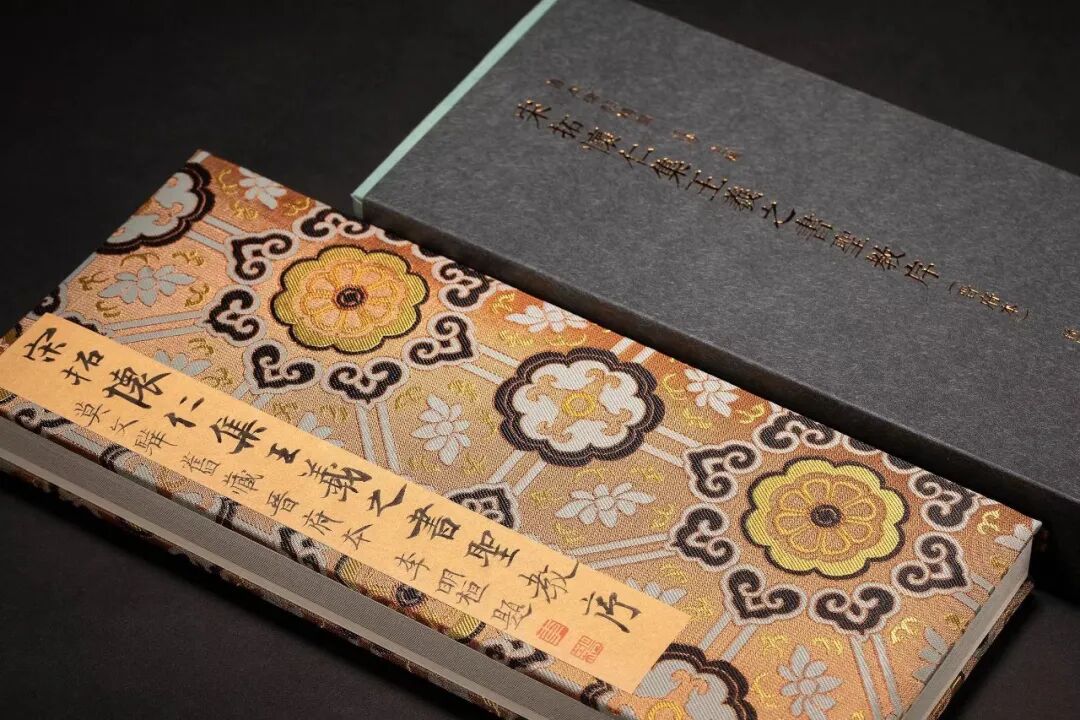 宋拓懷仁集王羲之書聖教序
莫文驊舊藏晉府本 李明桓題
宋拓懷仁集王羲之書聖教序